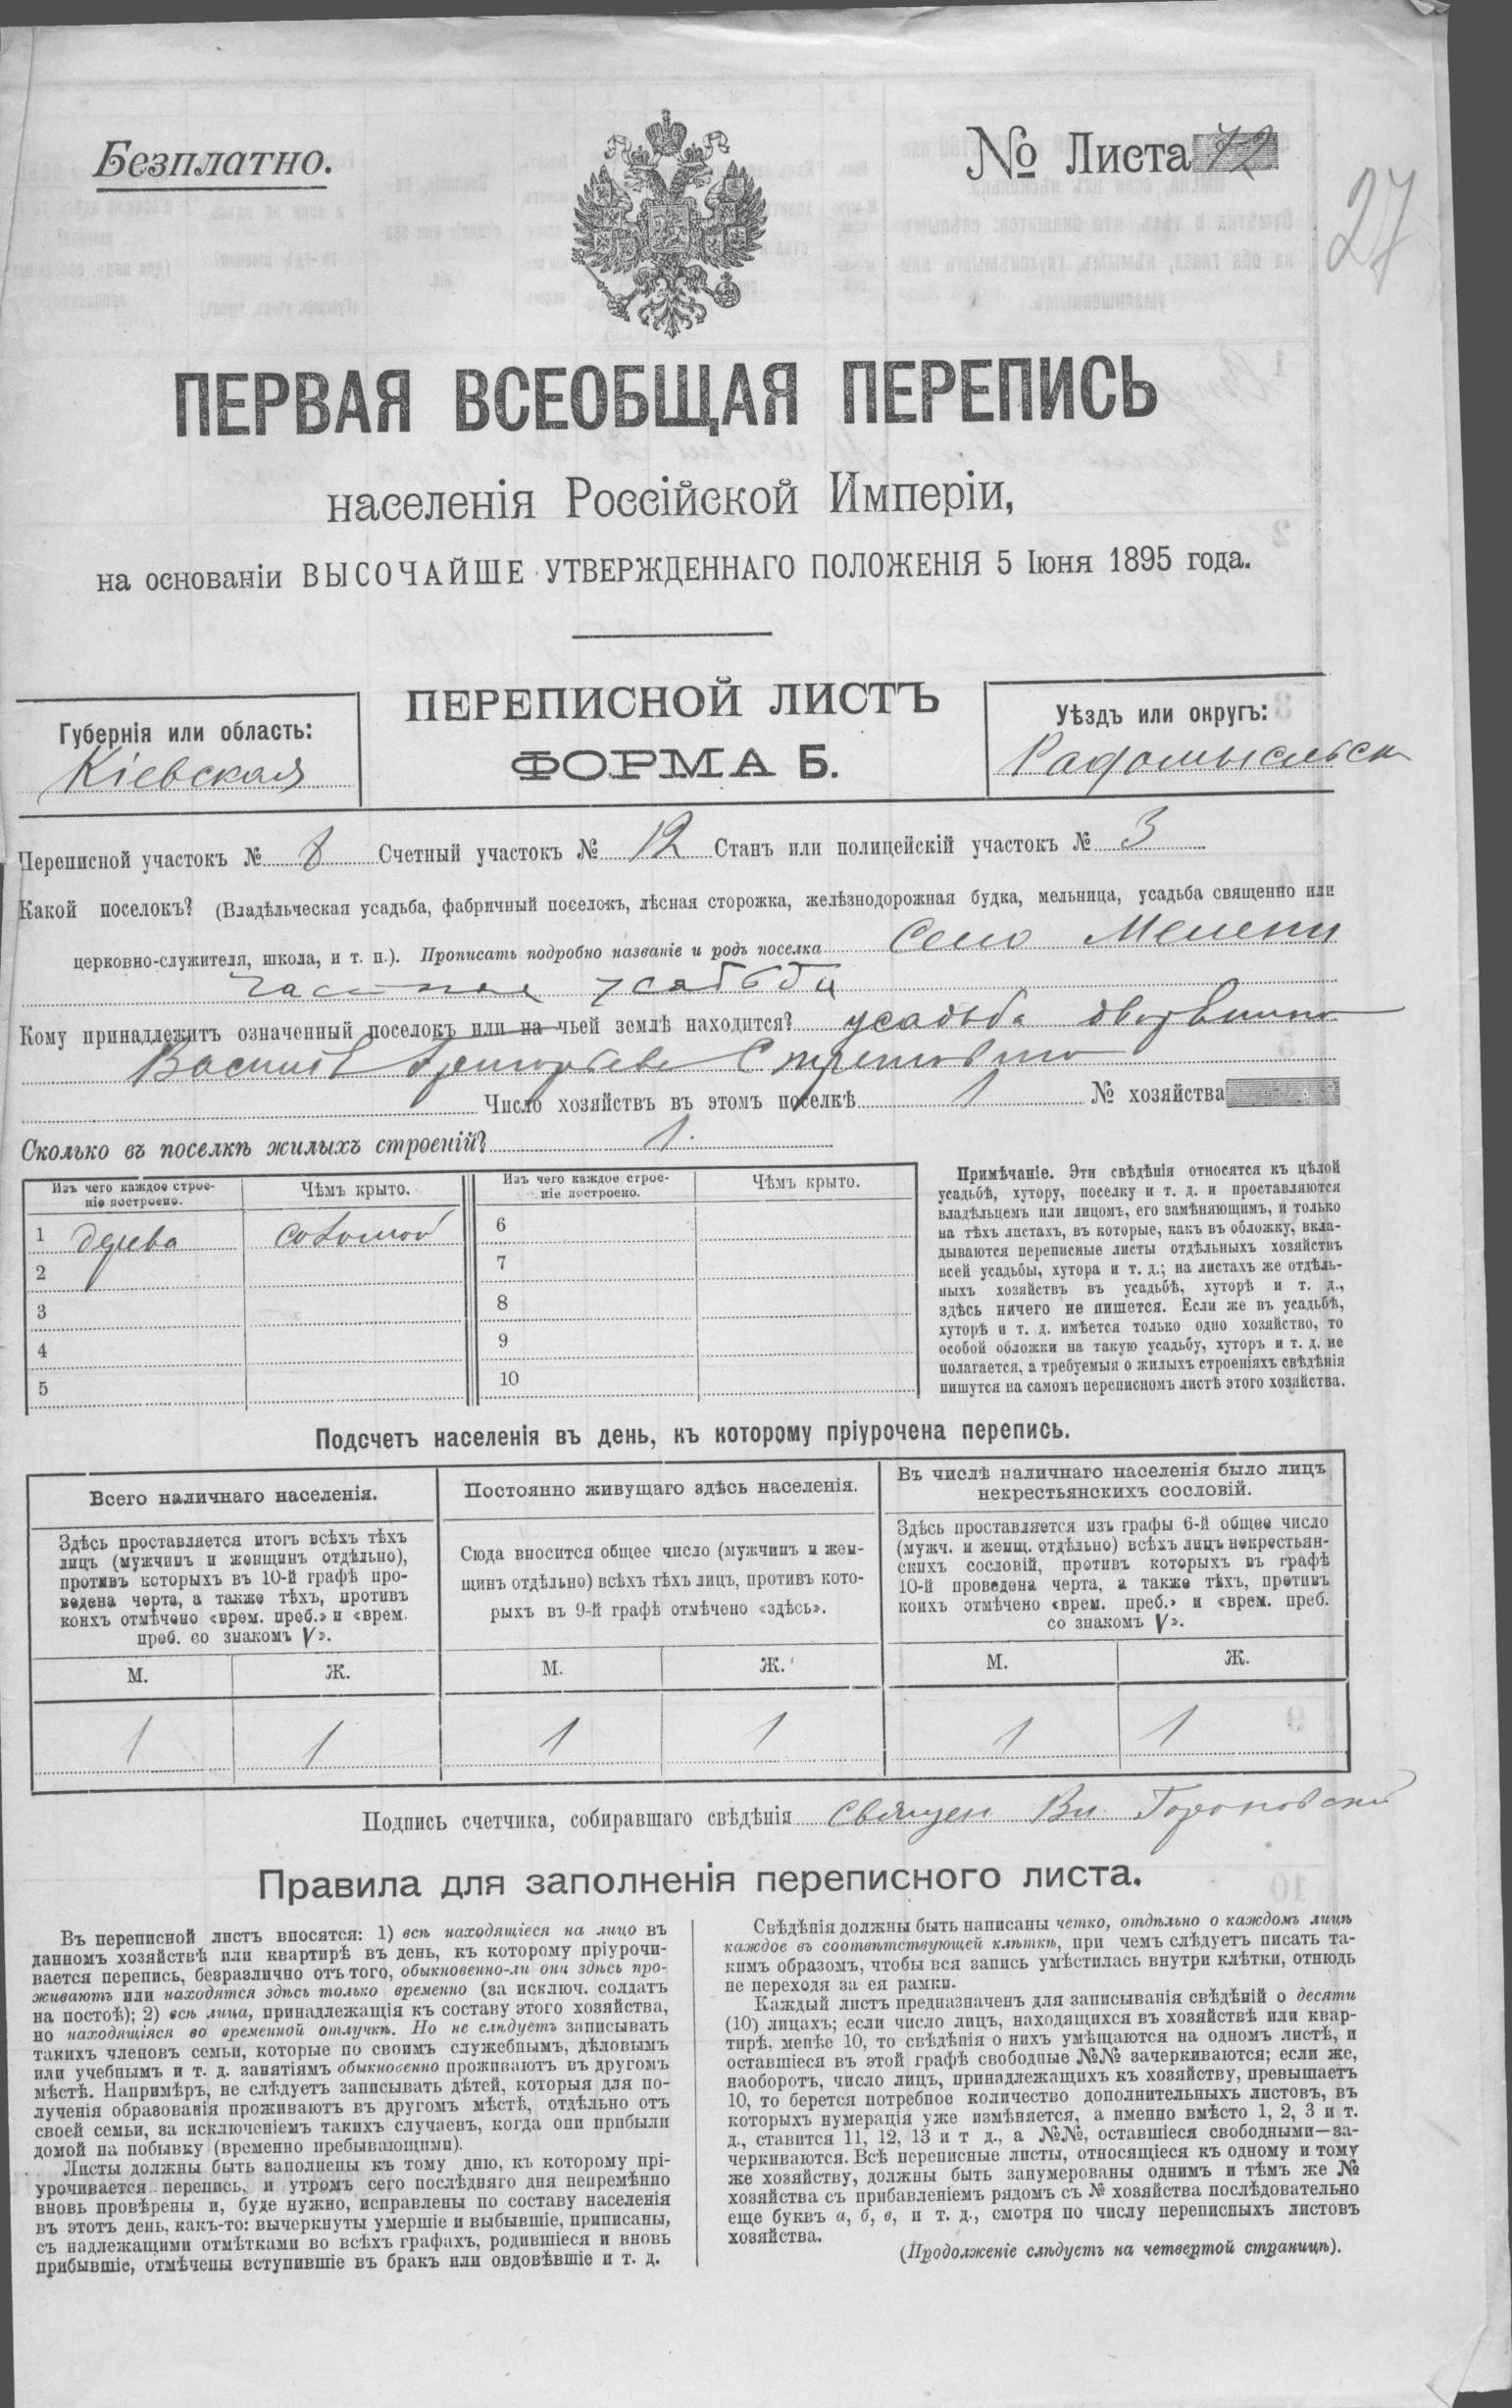 Безплатно.
№ Листа 72
27
ПЕРВАЯ ВСЕОБЩАЯ ПЕРЕПИСЬ
населенія Россійской Имперіи,
на основаніи ВЫСОЧАЙШЕ УТВЕРЖДЕННАГО ПОЛОЖЕНІЯ 5 Іюня 1895 года.
ПЕРЕПИСНОЙ ЛИСТЪ
ФОРМА Б.
Губернія или область:
Кіевская
Уѣздъ или округъ:
Радомысльск
Переписной участокъ № 8 Счетный участокъ № 12 Станъ или полицейскій участокъ № 3
Какой поселокъ? (Владѣльческая усадьба, фабричный поселокъ, лѣсная сторожка, желѣзнодорожная будка, мельница, усадьба священно или
церковно-служителя, школа, и т. п.). Прописать подробно названіе и родъ поселка Село Мелени
Кому принадлежитъ означенный поселокъ или на чьей землѣ находится? усадьба
Число хозяйствъ въ этомъ поселкѣ 1 № хозяйства
Сколько въ поселкѣ жилыхъ строеній? 1.
Изъ чего каждое строе-
ніе построено.
Чѣмъ крыто.
Изъ чего каждое строе-
ніе построено.
Чѣмъ крыто.
1 дерева соломой
2
3
4
5
6
7
8
9
10
Примѣчаніе. Эти свѣдѣнія относятся къ цѣлой
усадьбѣ, хутору, поселку и т. д. и проставляются
владѣльцемъ или лицомъ, его замѣняющимъ, и только
на тѣхъ листахъ, въ которые, какъ въ обложку, вкла-
дываются переписные листы отдѣльныхъ хозяйствъ
всей усадьбы, хутора и т. д.; на листахъ же отдѣль-
ныхъ хозяйствъ въ усадьбѣ, хуторѣ и т. д.,
здѣсь ничего не пишется. Если же въ усадьбѣ,
хуторѣ и т. д. имѣется только одно хозяйство, то
особой обложки на такую усадьбу, хуторъ и т. д. не
полагается, а требуемыя о жилыхъ строеніяхъ свѣдѣнія
пишутся на самомъ переписномъ листѣ этого хозяйства.
Подсчетъ населенія въ день, къ которому пріурочена перепись.
Всего наличнаго населенія.
Здѣсь проставляется итогъ всѣхъ тѣхъ
лицъ (мужчинъ и женщинъ отдѣльно),
противъ которыхъ въ 10-й графѣ про-
ведена черта, а также тѣхъ, противъ
коихъ отмѣчено «врем. преб.» и «врем.
преб. со знакомъ V».
Постоянно живущаго здѣсь населенія.
Сюда вносится общее число (мужчинъ и жен-
щинъ отдѣльно) всѣхъ тѣхъ лицъ, противъ кото-
рыхъ въ 9-й графѣ отмѣчено «здѣсь».
Въ числѣ наличнаго населенія было лицъ
некрестьянскихъ сословій.
Здѣсь проставляется изъ графы 6-й общее число
(мужч. и женщ. отдѣльно) всѣхъ лицъ некрестьян-
скихъ сословій, противъ которыхъ въ графѣ
10-й проведена черта, а также тѣхъ, противъ
коихъ отмѣчено «врем. преб.» и «врем. преб.
со знакомъ V».
М. Ж. М. Ж. М. Ж.
1 1 1 1 1 1
Подпись счетчика, собиравшаго свѣдѣнія Священ Вл.
Правила для заполненія переписного листа.
Въ переписной листъ вносятся: 1) всѣ находящіеся на лицо въ
данномъ хозяйствѣ или квартирѣ въ день, къ которому пріурочи-
вается перепись, безразлично отъ того, обыкновенно-ли они здѣсь про-
живаютъ или находятся здѣсь только временно (за исключ. солдатъ
на постоѣ); 2) всѣ лица, принадлежащія къ составу этого хозяйства,
но находящіяся во временной отлучкѣ. Но не слѣдуетъ записывать
такихъ членовъ семьи, которые по своимъ служебнымъ, дѣловымъ
или учебнымъ и т. д. занятіямъ обыкновенно проживаютъ въ другомъ
мѣстѣ. Напримѣръ, не слѣдуетъ записывать дѣтей, которыя для по-
лученія образованія проживаютъ въ другомъ мѣстѣ, отдѣльно отъ
своей семьи, за исключеніемъ такихъ случаевъ, когда они прибыли
домой на побывку (временно пребывающими).
Листы должны быть заполнены къ тому дню, къ которому прі-
урочивается перепись, и утромъ сего послѣдняго дня непремѣнно
вновь провѣрены и, буде нужно, исправлены по составу населенія
въ этотъ день, какъ-то: вычеркнуты умершіе и выбывшіе, приписаны,
съ надлежащими отмѣтками во всѣхъ графахъ, родившіеся и вновь
прибывшіе, отмѣчены вступившіе въ бракъ или овдовѣвшіе и т. д.
Свѣдѣнія должны быть написаны четко, отдѣльно о каждомъ лицѣ
каждое въ соотвѣтствующей клѣткѣ, при чемъ слѣдуетъ писать та-
кимъ образомъ, чтобы вся запись умѣстилась внутри клѣтки, отнюдь
не переходя за ея рамки.
Каждый листъ предназначенъ для записыванія свѣдѣній о десяти
(10) лицахъ; если число лицъ, находящихся въ хозяйствѣ или квар-
тирѣ, менѣе 10, то свѣдѣнія о нихъ умѣщаются на одномъ листѣ, и
оставшіеся въ этой графѣ свободные №№ зачеркиваются; если же,
наоборотъ, число лицъ, принадлежащихъ къ хозяйству, превышаетъ
10, то берется потребное количество дополнительныхъ листовъ, въ
которыхъ нумерація уже измѣняется, а именно вмѣсто 1, 2, 3 и т.
д., ставится 11, 12, 13 и т д., а №№, оставшіеся свободными—за-
черкиваются. Всѣ переписные листы, относящіеся къ одному и тому
же хозяйству, должны быть занумерованы однимъ и тѣмъ же №
хозяйства съ прибавленіемъ рядомъ съ № хозяйства послѣдовательно
еще буквъ а, б, в, и т. д., смотря по числу переписныхъ листовъ
хозяйства.
(Продолженіе слѣдуетъ на четвертой страницѣ).